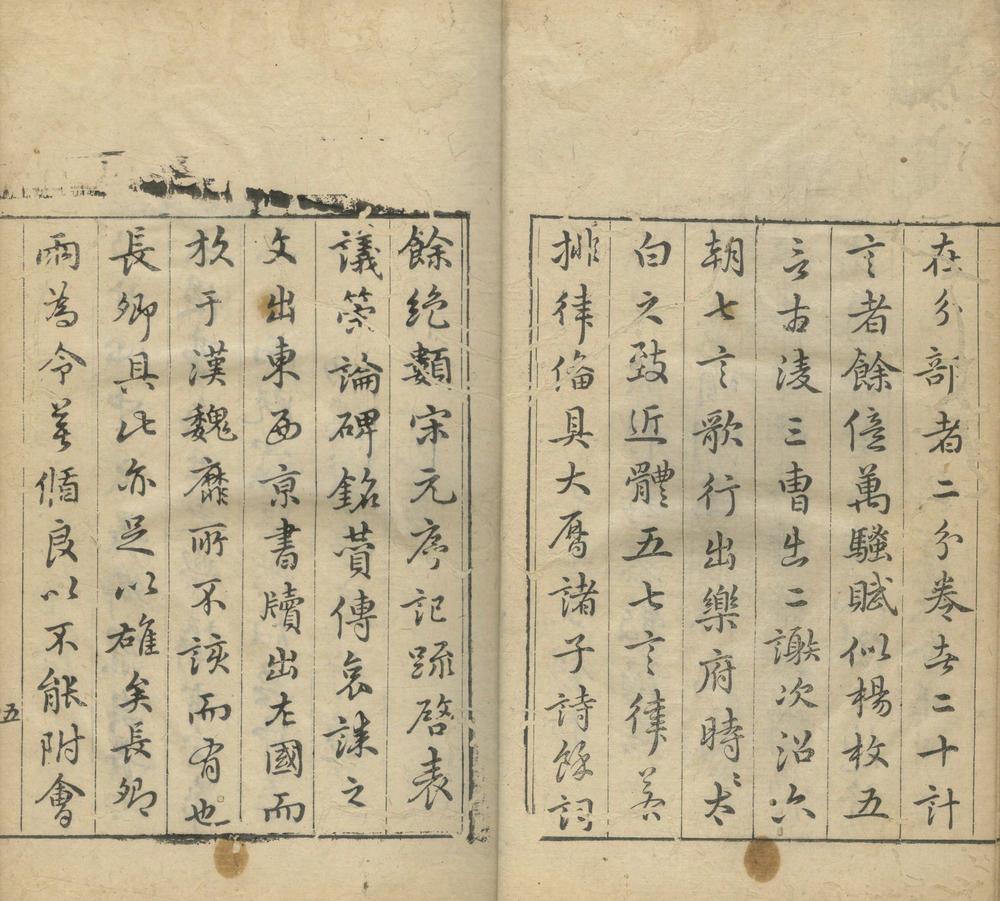 在分部者二分卷者二十計
言者餘億萬騷賦似楊枚五
言古淩三曹出二謝次沿六
朝七言歌行出樂府時時太
白之致近體五七言律若
排律俻具大曆諸子詩餘詞
餘絶類宋元序記疏啓表
議策論碑銘贊傳哀誄之
文出東西京書牘出左國而
放于漢魏靡所不該而有也
長卿具此亦足以雄矣長卿
兩為令並循良以不能附會
五